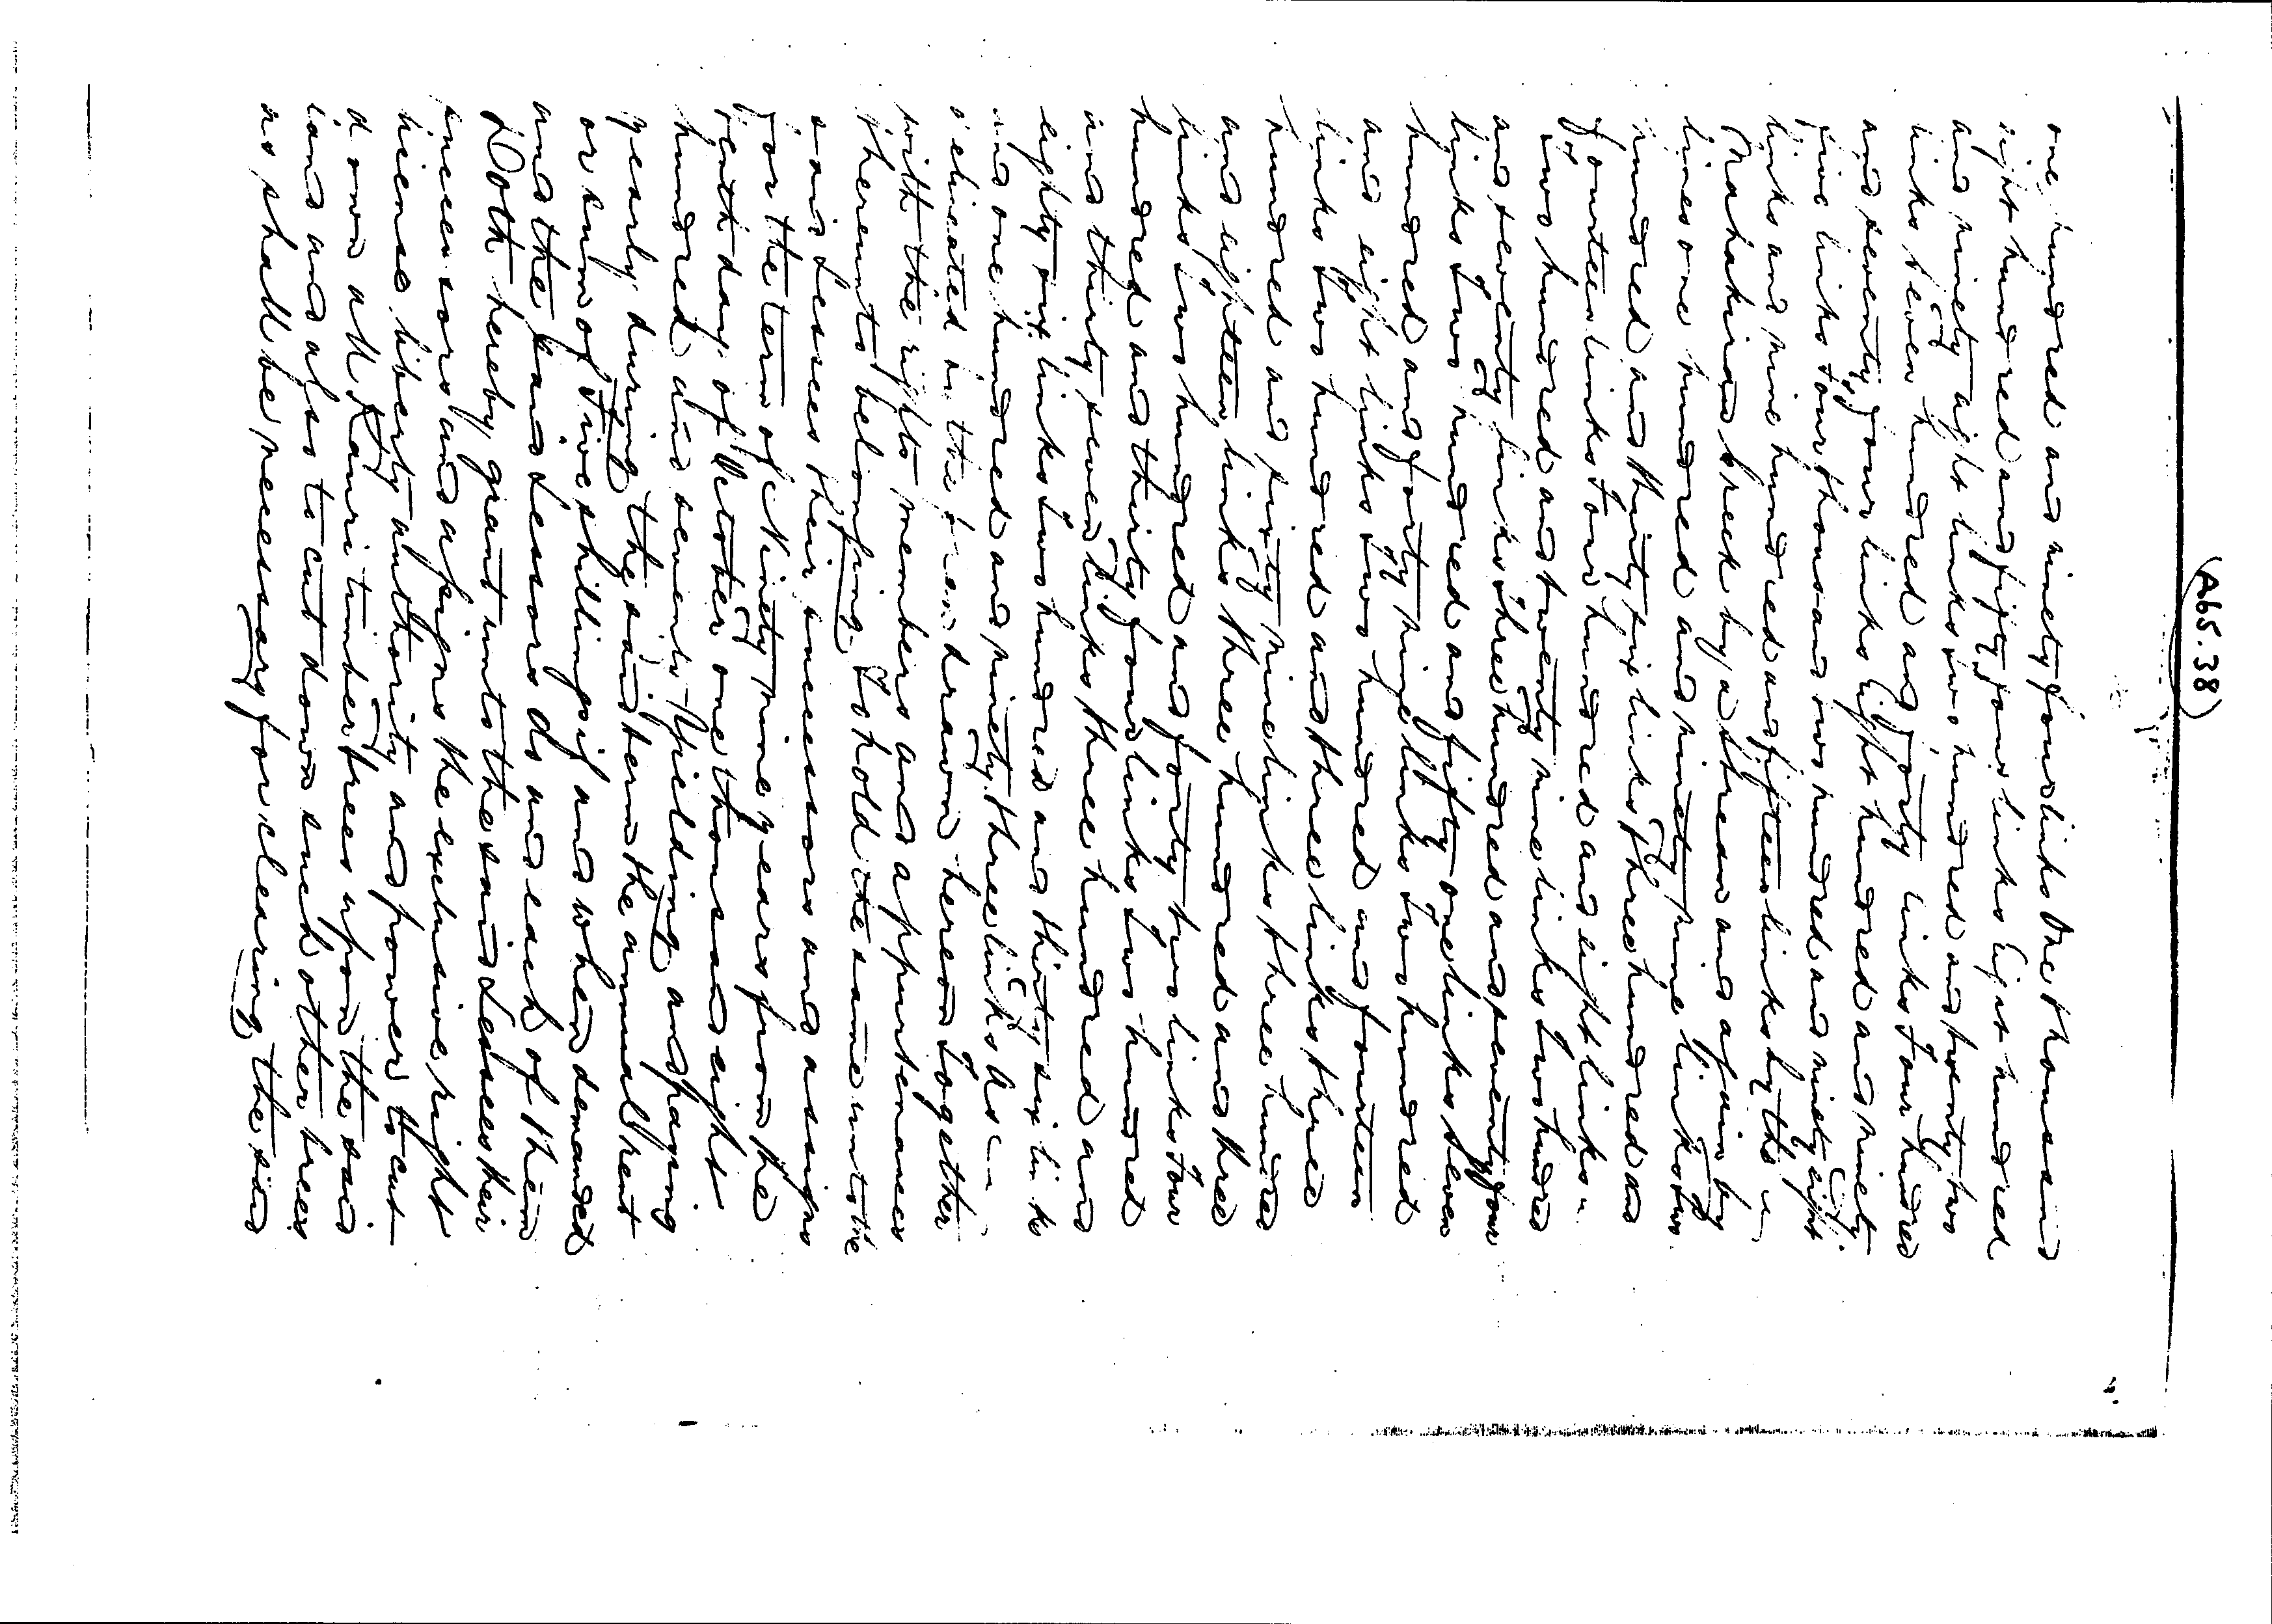 (Ab5.38)
one hundred and ninety four links One thousand
eight hundred and fifty four links Eight hundred
and ninety eight links two hundred and twenty two
links Seven hundred and forty links Four hundred
and seventy four links Eight hundred and ninety
five links Four thousand two hundred and ninety eight
links and nine hundred and fifteen links by the
Mahakirau Creek by a stream and again by
lines one hundred and ninety nine links two
hundred and thirty six links Three hundred and
fourteen links Four hundred and eight links
two hundred and twenty nine links Two hundred
and seventy links three hundred and seventy four
links Two hundred and fifty one links Seven
hundred and forty nine links Two hundred
and eight links Two hundred and fourteen
links Two hundred and three links three
hundred and sixty nine links three hundred
and eighteen links three hundred and three
links two hundred and forty two links Four
hundred and thirty four links Two hundred
and thirty seven links three hundred and
eighty six links Two hundred and thirty six links
and one hundred and ninety three links As
delineated in the plan drawn hereon Together
with the rights members and appurtenances
thereunto belonging To hold the same unto the
said Lessees their successors and assigns
for the term of Ninety nine years from the
tenth day of October one thousand eight
hundred and seventy Yielding and paying
yearly during the said term the annual rent
or sum of Five shillings if and when demanded
and the said Lessors do and each of them
Doth hereby grant unto the said Lessees their
successors and assigns the exclusive right
license liberty authority and power to cut
down all Kauri timber trees upon the said
land and also to cut down such other trees
as shall be necessary for clearing the said